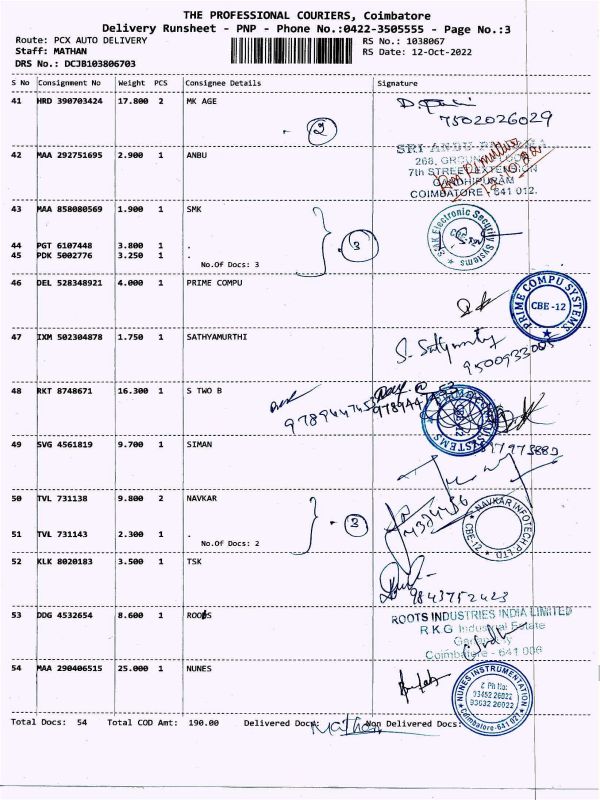 THE PROFESSIONAL COURIERS, Coimbatore
Delivery Runsheet - PNP - Phone No.:0422-3505555 - Page No.:3
Route: PCX AUTO DELIVERY RS No.: 1038067
Staff: MATHAN RS Date: 12-Oct-2022
DRS No.: DCJB103806703
S No Consignment No Weight PCS Consignee Details Signature
41 HRD 390703424 17.800 2 MK AGE
7502026029
2
42 MAA 292751695 2.900 1 ANBU
SRI ANBU
268, GROUND
7th STREET EXTENSION
GANDHIPURAM
COIMBATORE - 641 012.
43 MAA 858080569 1.900 1 SMK
SMK Electronic Security Systems
3
44 PGT 6107448 3.800 1 .
45 PDK 5002776 3.250 1 .
No.Of Docs: 3
46 DEL 528348921 4.000 1 PRIME COMPU
PRIME COMPU SYSTEMS
CBE -12
47 IXM 502304878 1.750 1 SATHYAMURTHI
S. Sathyamurthy
48 RKT 8748671 16.300 1 S TWO B
49 SVG 4561819 9.700 1 SIMAN
50 TVL 731138 9.800 2 NAVKAR
NAVKAR INFOTECH P LTD
CBE-12
3
51 TVL 731143 2.300 1 .
No.Of Docs: 2
52 KLK 8020183 3.500 1 TSK
9843752423
53 DDG 4532654 8.600 1 ROOTS
ROOTS INDUSTRIES INDIA LIMITED
R K G Industrial Estate
Coimbatore - 641 006
54 MAA 290406515 25.000 1 NUNES
NUNES INSTRUMENTATION
Ph No:
93452 26022
93632 26022
Coimbatore-641 027
Total Docs: 54 Total COD Amt: 190.00 Delivered Docs: Non Delivered Docs:
Mathan